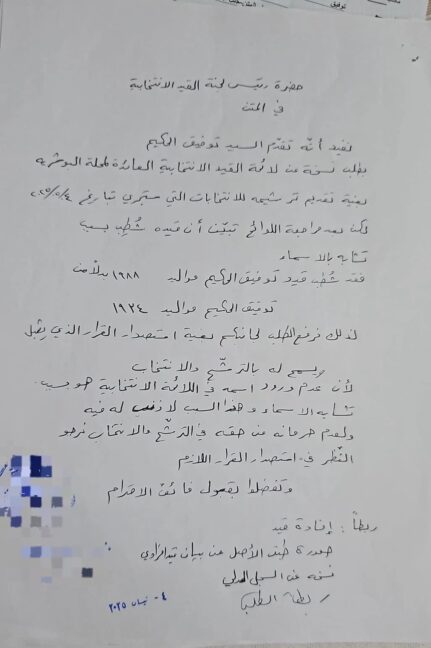 حضرة رئيس لجنة القيد الانتخابية
في المتن
نفيد أنّه تقدّم السيد توفيق الحكيم
بطلب نسخة عن لائحة القيد الانتخابية العائدة لمحلة البوشريه
بغية تقديم ترشيحه للانتخابات التي ستجري بتاريخ ٢٠٢٥/٥/٤
لكن بعد مراجعة اللوائح تبيّن أن قيده شُطِبَ بسبب
تشابه بالاسماء
فقد شُطِبَ قيد توفيق الحكيم مواليد ١٩٨٨ بدلاً من
توفيق الحكيم مواليد ١٩٢٤
لذلك نرفع الطلب لجانبكم بغية استصدار القرار الذي يقبل
ويسمح له بالترشّح والانتخاب
لأن عدم ورود اسمه في اللائحة الانتخابية هو بسبب
تشابه الاسماء وهذا السبب لا ذنب له فيه
ولعدم حرمانه من حقه في الترشّح والانتخاب نرجو
النّظر في استصدار القرار اللازم
وتفضلوا بقبول فائق الاحترام
ربطاً: إفادة قيد
صورة طبق الأصل عن بيان قيد افرادي
نسخة عن السجل العدلي
ربطاً الطلب
٤ - نيسان ٢٠٢٥